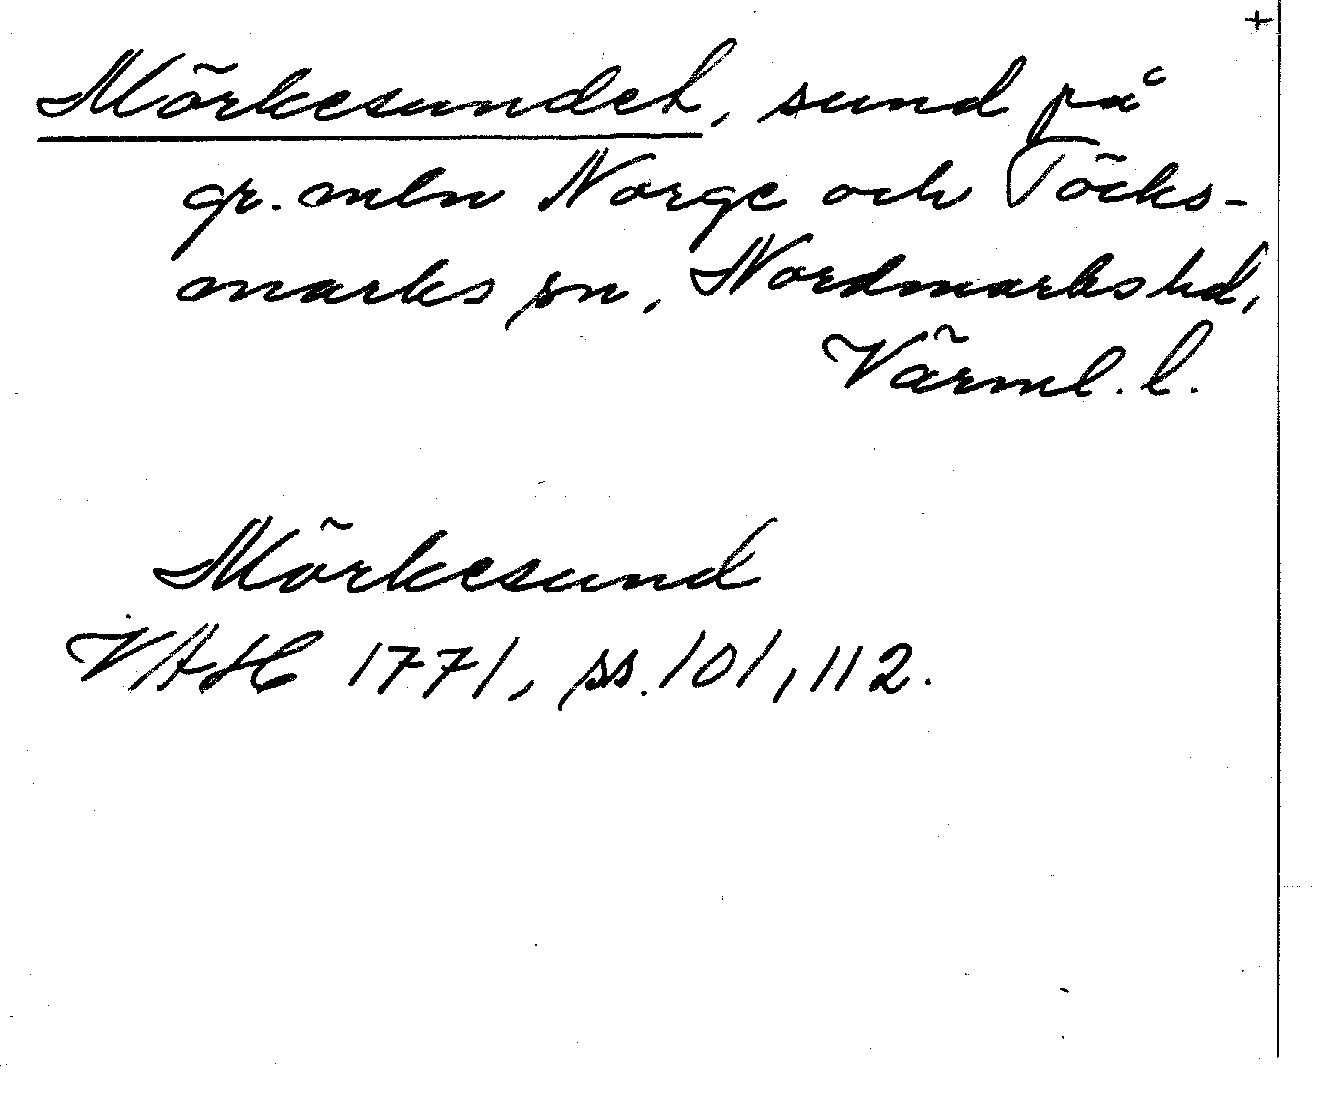 +
Mörkesundet, sund på
gr. mln Norge och Töcks-
marks sn, Nordmarks hd,
Värml. l.
Mörkesund
VAH 1771, ss. 101, 112.